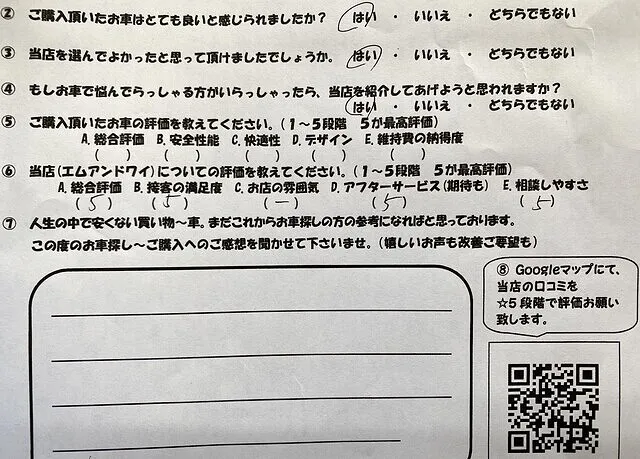 ② ご購入頂いたお車はとても良いと感じられましたか？ はい ・ いいえ ・ どちらでもない
③ 当店を選んでよかったと思って頂けましたでしょうか。 はい ・ いいえ ・ どちらでもない
④ もしお車で悩んでらっしゃる方がいらっしゃったら、当店を紹介してあげようと思われますか？
はい ・ いいえ ・ どちらでもない
⑤ ご購入頂いたお車の評価を教えてください。（１～５段階　５が最高評価）
A. 総合評価 B. 安全性能 C. 快適性 D. デザイン E. 維持費の納得度
( ) ( ) ( ) ( ) ( )
⑥ 当店（エムアンドワイ）についての評価を教えてください。（１～５段階　５が最高評価）
A. 総合評価 B. 接客の満足度 C. お店の雰囲気 D. アフターサービス（期待も） E. 相談しやすさ
(5) (5) (ー) (5) (5)
⑦ 人生の中で安くない買い物～車。まだこれからお車探しの方の参考になればと思っております。
この度のお車探し～ご購入へのご感想を聞かせて下さいませ。（嬉しいお声も改善ご要望も）
⑧ Googleマップにて、
当店の口コミを
☆５段階で評価お願い
致します。